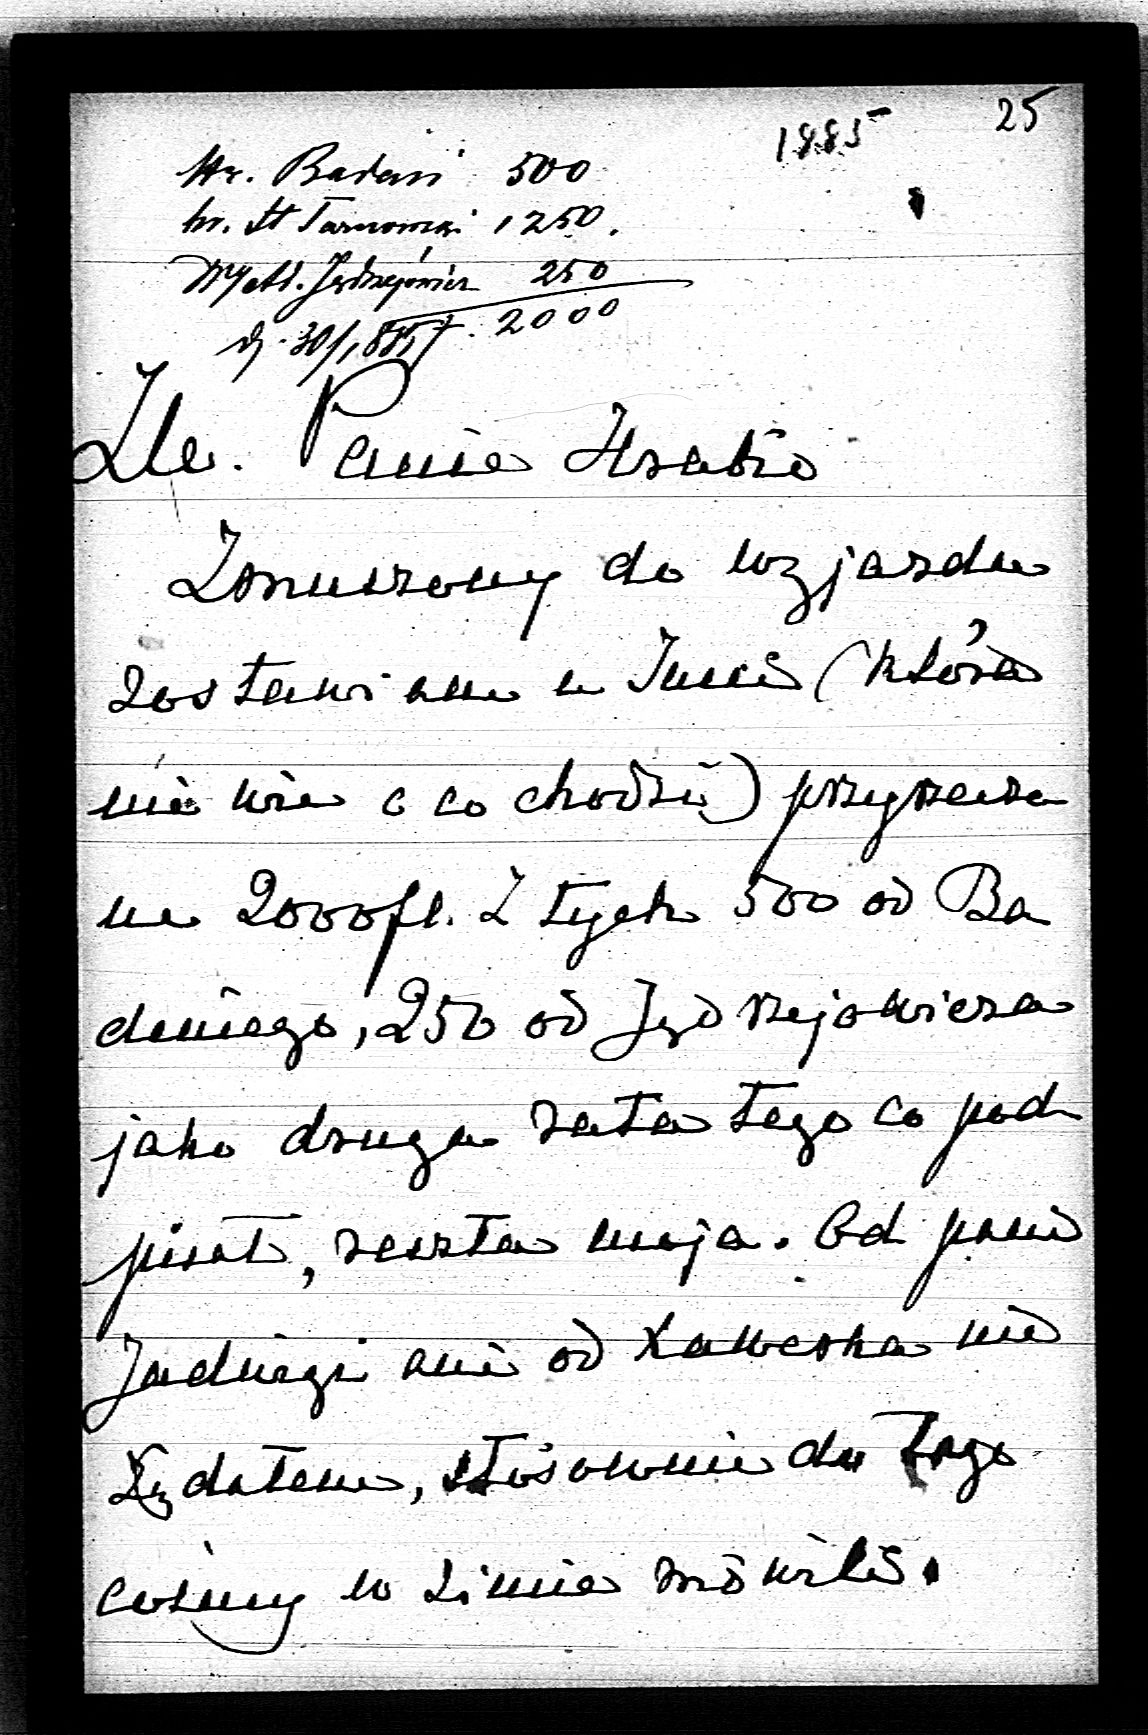 25
1885
Hr. Badeni 500
hr. St Tarnowski 1250.
Wład. Jędrzejowicz 250
2000
d. 30/1885
Panie Hrabio
Zmuszony do wyjazdu
zostawiam u Imci (która
nie wie o co chodzi) przyrzeczo
ne 2000 fl. Z tych 500 od Ba
deniego, 250 od Jędrzejowicza
jako druga rata tego co pod
pisał, reszta moja. Od pani
Jadwigi ani od Xawerka nie
żądałem, stósownie do tego
cośmy w zimie mówili.